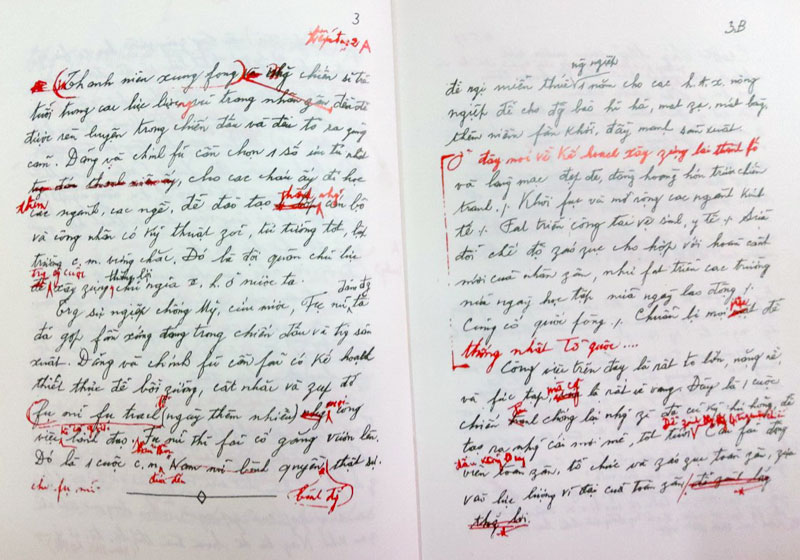 3
(Thanh niên xung fong) và nhg chiến sĩ trẻ
tuổi trong các lực lượng vũ trang nhân zân đều đã
được rèn luyện trong chiến đấu và đều tỏ ra zũng
cảm. Đảng và chính fủ cần chọn 1 số ưu tú nhất
cho các cháu ấy đi học
thêm các ngành, các ngề, để đào tạo thành nhg cán bộ
và công nhân có kỹ thuật zỏi, tư tưởng tốt, lập
trường c.m. vững chắc. Đó là đội quân chủ lực
xây zựng thắng lợi chủ ngĩa x.h. ở nước ta.
Trg sự ngiệp chống Mỹ, cứu nước, Fụ nữ đảm đg ta
đã góp fần xứng đáng trong chiến đấu và trg sản
xuất. Đảng và chính fủ cần fải có kế hoạch
thiết thực để bồi zưỡng, cất nhắc và zúp đỡ
fụ nữ fụ trách ngày thêm nhiều mọi công
việc kể cả lãnh đạo. Fụ nữ thì fải cố gắng vươn lên.
Đó là 1 cuộc c.m. đưa đến quyền bình đg thật sự
cho fụ nữ.
3B
đề ngị miễn thuế nông ngiệp 1 năm cho các h.t.x. nông
ngiệp để cho đg bào hỉ hả, mát zạ, mát lòng,
thêm niềm fấn khởi, đẩy mạnh sản xuất.
xây zựng lại thành fố
và làng mạc đẹp đẽ, đàng hoàng hơn trước chiến
tranh ./. Khôi fục và mở rộng các ngành kinh
tế ./. Fát triển công tác vệ sinh, y tế ./. Sửa
đổi chế độ záo zục cho hợp với hoàn cảnh
mới của nhân zân, như fát triển các trường
nửa ngày học tập nửa ngày lao động ./.
Củng cố quốc fòng ./. Chuẩn bị mọi việc để
thống nhất Tổ quốc ....
Công việc trên đây là rất to lớn, nặng nề,
và fức tạp, mà cũng là rất vẻ vang. Đây là 1 cuộc
chiến đấu chống lại nhg zì đã cũ kỹ, hư hỏng, để
tạo ra nhg cái mới mẻ, tốt tươi. Cần fải động
viên toàn zân, tổ chức và záo zục toàn zân, zựa
vào lực lượng vĩ đại của toàn zân